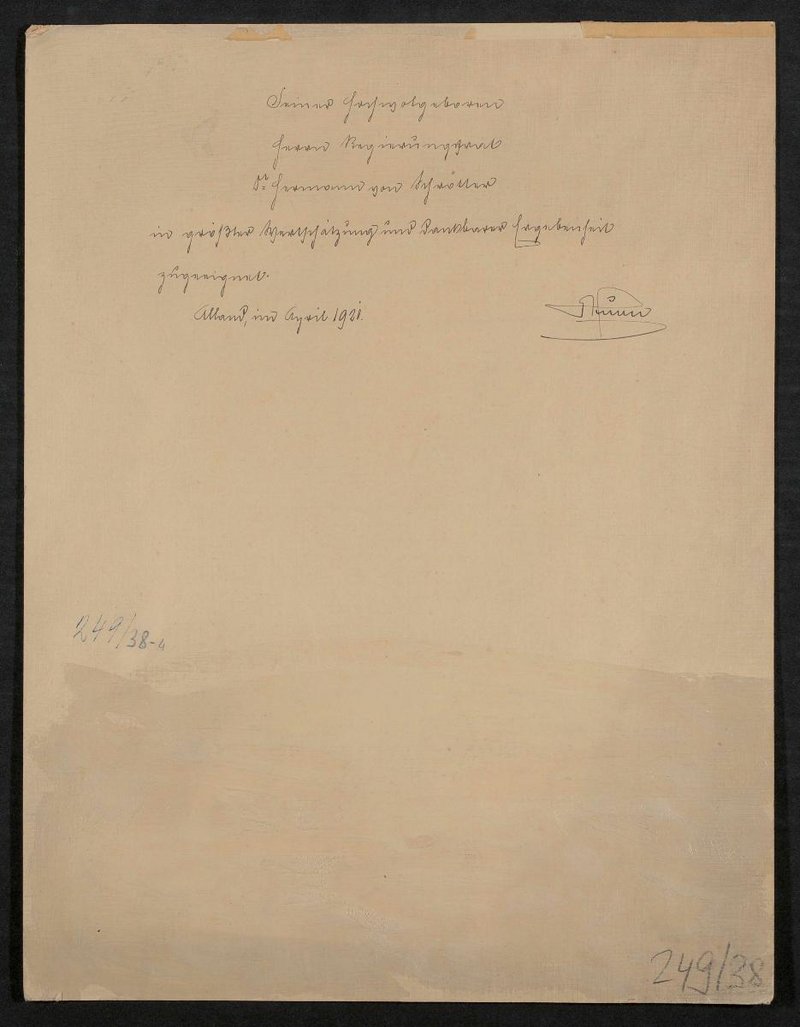 Seiner Hochwolgeboren
Herrn Regierungsrat
Dr. Hermann von Schrötter
in größter Wertschätzung und dankbarer Ergebenheit
zugeeignet.
Alland, im April 1921.
249/38-a
249/38